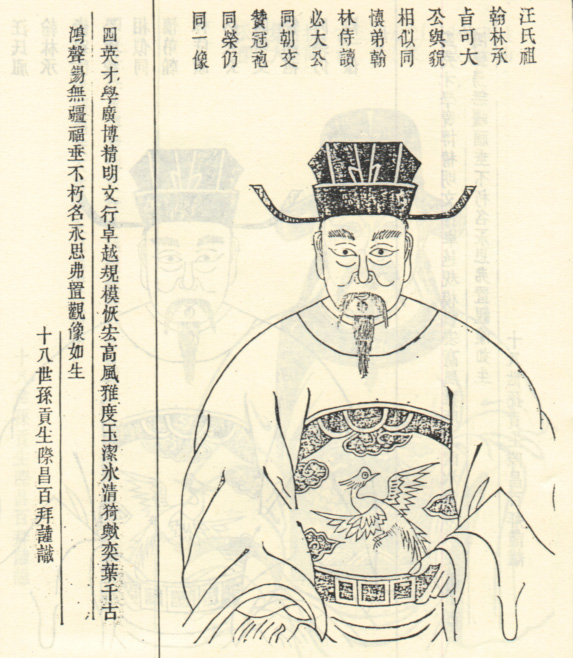 汪氏祖
翰林承
旨可大
公與貌
相似同
懷弟翰
林侍讀
必大公
同朝交
贊冠袍
同榮仍
同一像
四英才學廣博精明文行卓越規模恢宏高風雅度玉潔氷清猗歟奕葉千古
鴻聲昜無疆福垂不朽名永思弗置觀像如生
十八世孫貢生際昌百拜謹識